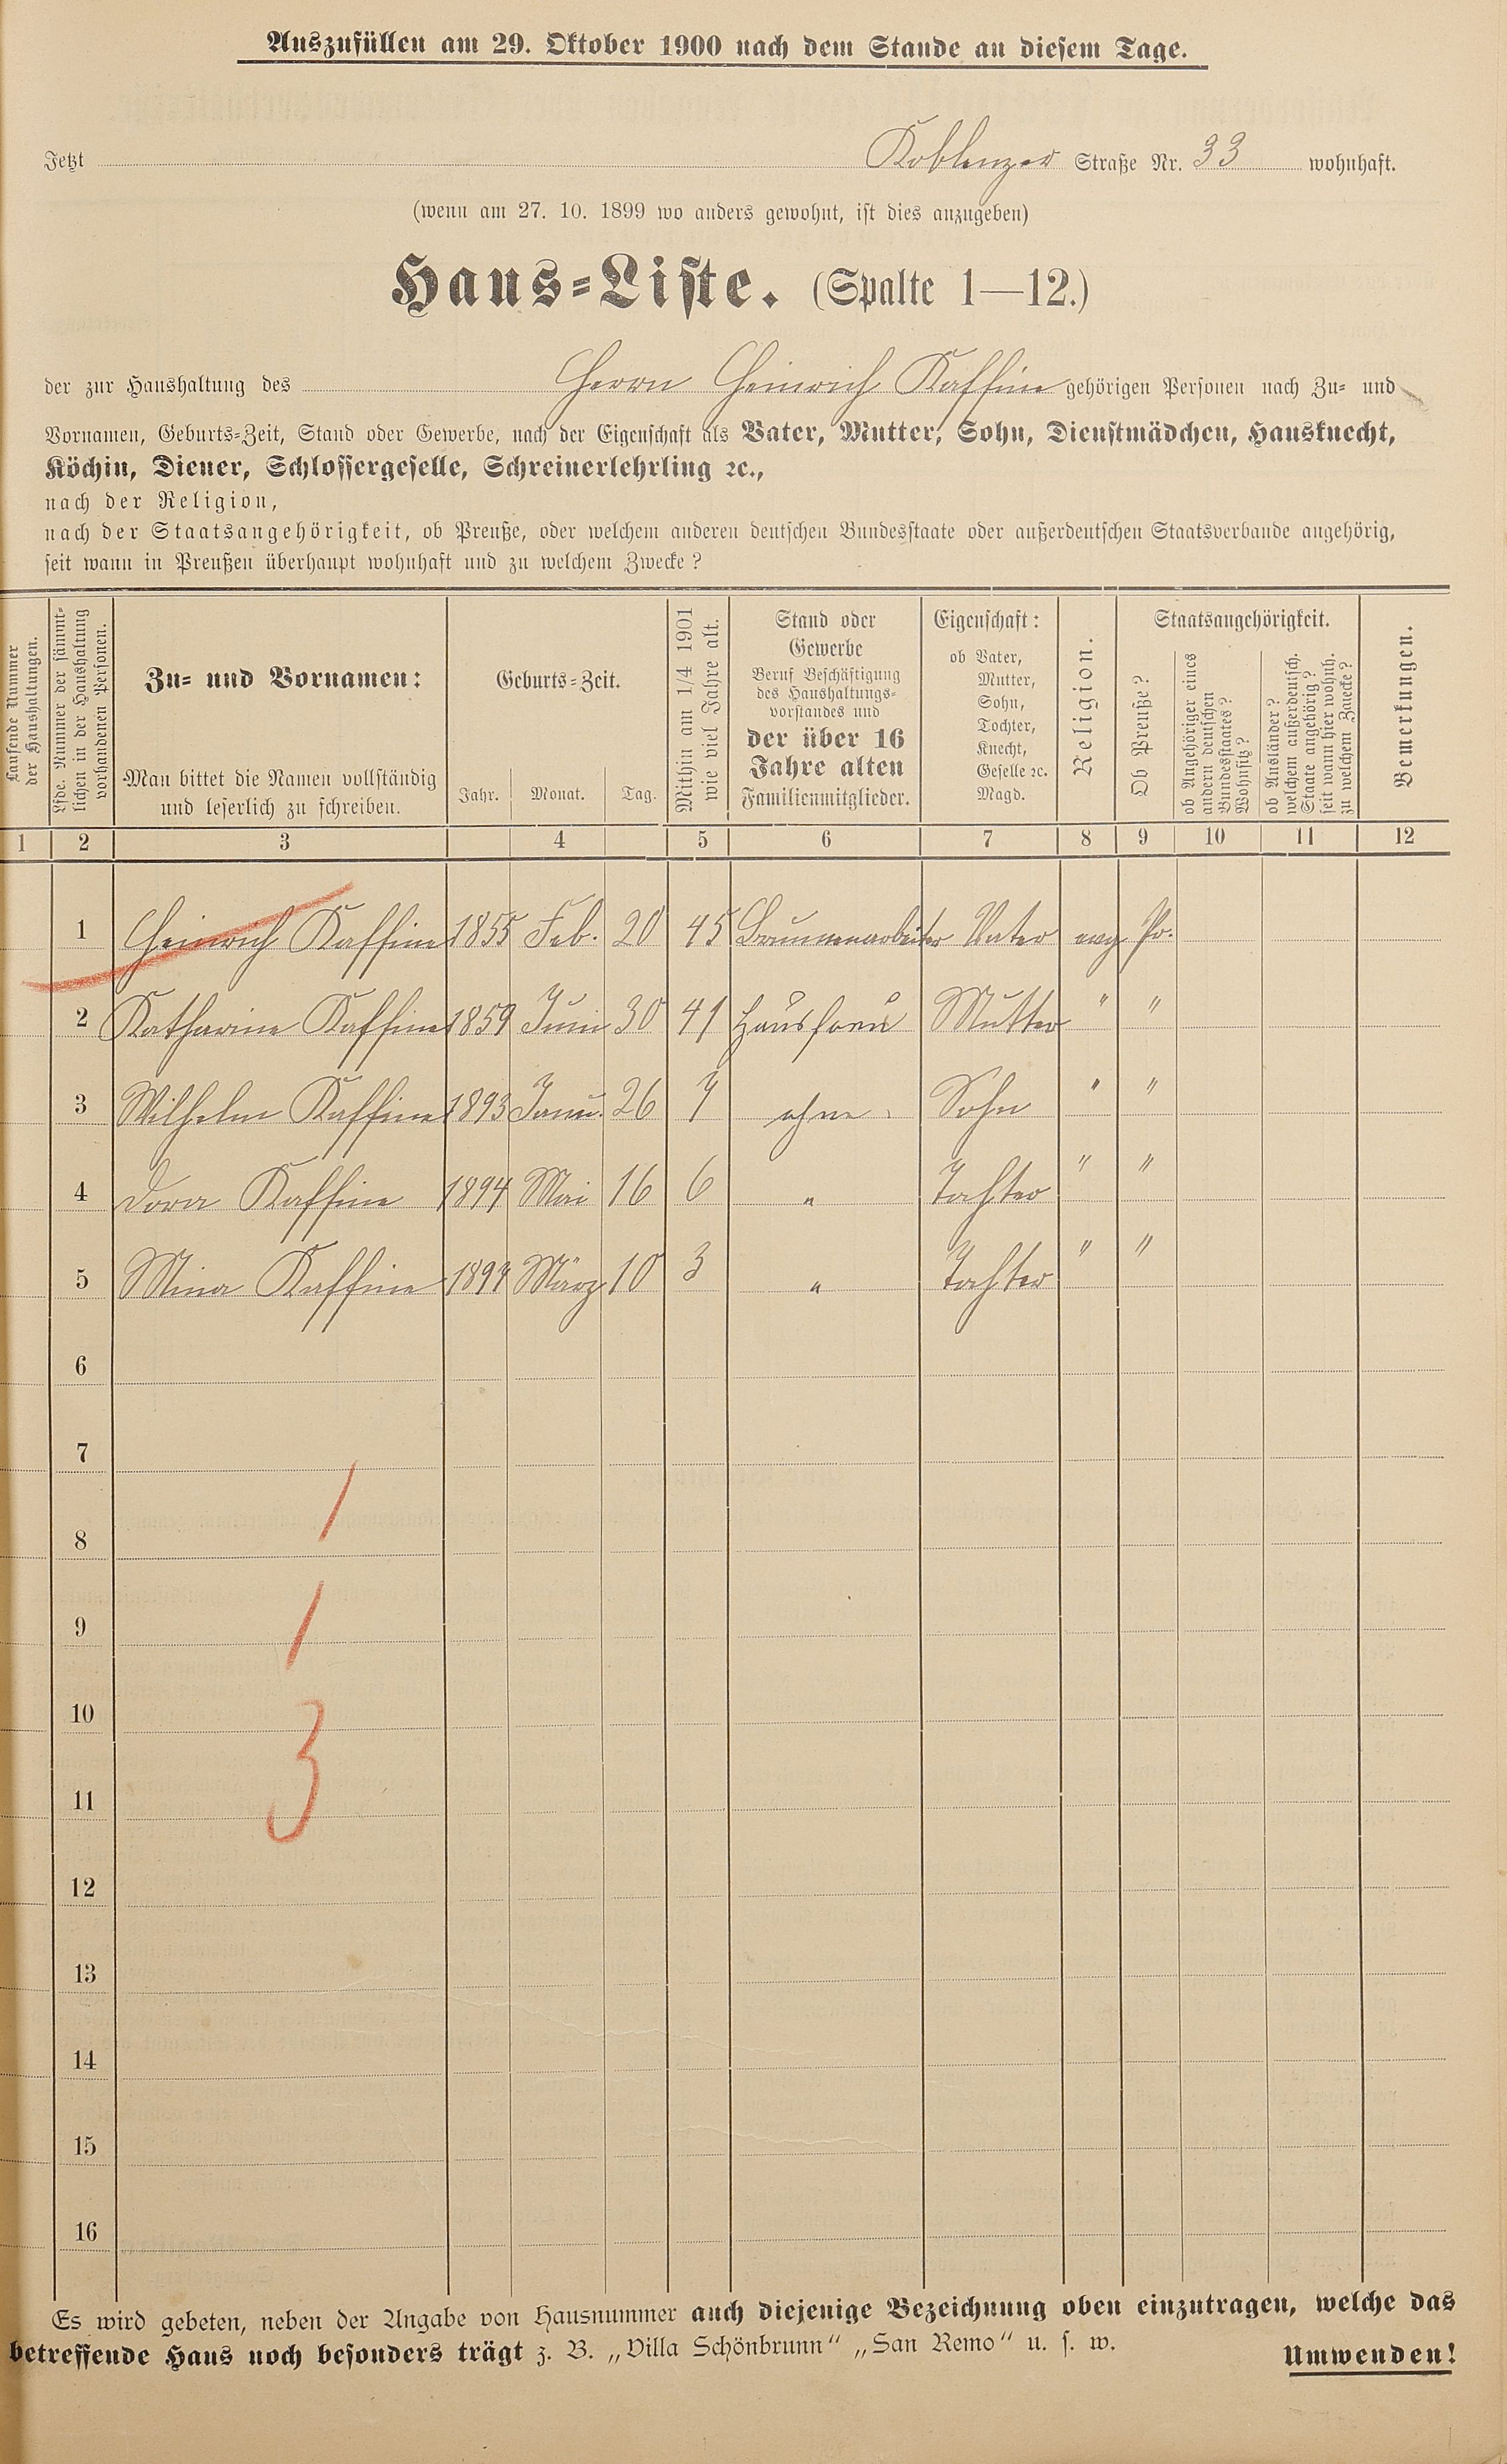 Auszufüllen am 29. Oktober 1900 nach dem Stande an diesem Tage.
Jetzt Koblenzer Straße Nr. 33 wohnhaft.
(wenn am 27. 10. 1899 wo anders gewohnt, ist dies anzugeben)
Haus=Liste. (Spalte 1—12.)
der zur Haushaltung des Herrn Heinrich Kaffine gehörigen Personen nach Zu= und
Vornamen, Geburts=Zeit, Stand oder Gewerbe, nach der Eigenschaft als Vater, Mutter, Sohn, Dienstmädchen, Hausknecht,
Köchin, Diener, Schlossergeselle, Schreinerlehrling ꝛc.,
nach der Religion,
nach der Staatsangehörigkeit, ob Preuße, oder welchem anderen deutschen Bundesstaate oder außerdeutschen Staatsverbande angehörig,
seit wann in Preußen überhaupt wohnhaft und zu welchem Zwecke?
Laufende Nummer
der Haushaltungen.
Lfde. Nummer der sämmt=
lichen in der Haushaltung
vorhandenen Personen.
Zu= und Vornamen:
Man bittet die Namen vollständig
und leserlich zu schreiben.
Geburts=Zeit.
Jahr. Monat. Tag.
Mithin am 1/4 1901
wie viel Jahre alt.
Stand oder
Gewerbe
Beruf Beschäftigung
des Haushaltungs=
vorstandes und
der über 16
Jahre alten
Familienmitglieder.
Eigenschaft:
ob Vater,
Mutter,
Sohn,
Tochter,
Knecht,
Geselle ꝛc.
Magd.
Religion.
Staatsangehörigkeit.
Ob Preuße?
ob Angehöriger eines
andern deutschen
Bundesstaates?
Wohnsitz?
ob Ausländer?
welchem außerdeutsch.
Staate angehörig?
seit wann hier wohnh.
zu welchem Zwecke?
Bemerkungen.
1 2 3 4 5 6 7 8 9 10 11 12
1 Heinrich Kaffine 1855 Feb. 20 45 Brunnenarbeiter Vater evg. Pr.
2 Katharine Kaffine 1859 Juni 30 41 Hausfrau Mutter " "
3 Wilhelm Kaffine 1893 Janu. 26 7 ohne. Sohn " "
4 Dora Kaffine 1894 Mai 16 6 " Tochter " "
5 Mina Kaffine 1897 März 10 3 " Tochter " "
6
7
8
9
10
11
12
13
14
15
16
1
1
3
Es wird gebeten, neben der Angabe von Hausnummer auch diejenige Bezeichnung oben einzutragen, welche das
betreffende Haus noch besonders trägt z. B. „Villa Schönbrunn“ „San Remo“ u. s. w.
Umwenden!